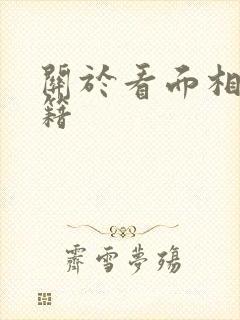 關於看面相
籍
霽雪夢殤